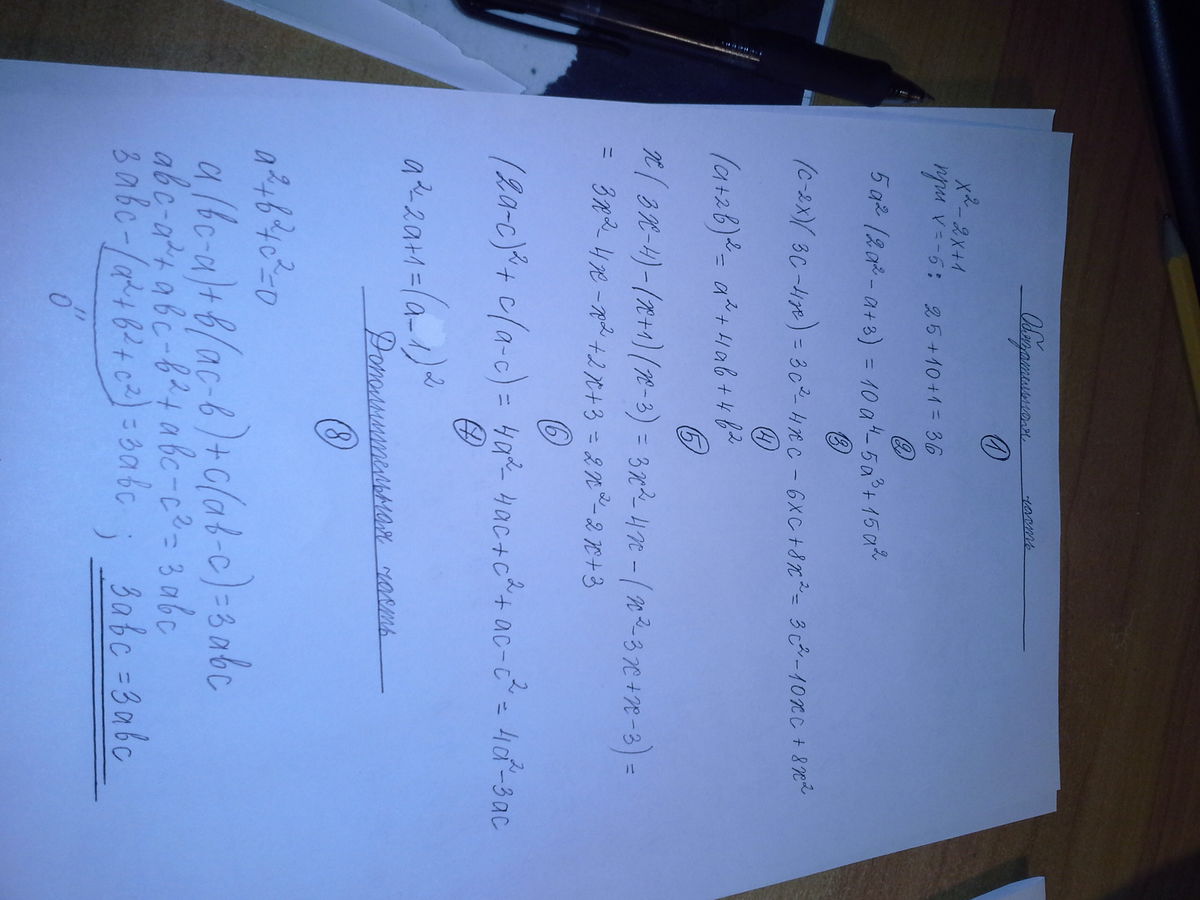 Обязательная часть
①
x² - 2x + 1
при x = -5: 25 + 10 + 1 = 36
②
5a² (2a² - a + 3) = 10a⁴ - 5a³ + 15a²
③
(c - 2x)(3c - 4x) = 3c² - 4xc - 6xc + 8x² = 3c² - 10xc + 8x²
④
(a + 2b)² = a² + 4ab + 4b²
⑤
x(3x - 4) - (x + 1)(x - 3) = 3x² - 4x - (x² - 3x + x - 3) =
= 3x² - 4x - x² + 2x + 3 = 2x² - 2x + 3
⑥
(2a - c)² + c(a - c) = 4a² - 4ac + c² + ac - c² = 4a² - 3ac
⑦
a² - 2a + 1 = (a - 1)²
Дополнительная часть
⑧
a² + b² + c² = 0
a(bc - a) + b(ac - b) + c(ab - c) = 3abc
abc - a² + abc - b² + abc - c² = 3abc
3abc - (a² + b² + c²) = 3abc ; 3abc = 3abc
0"